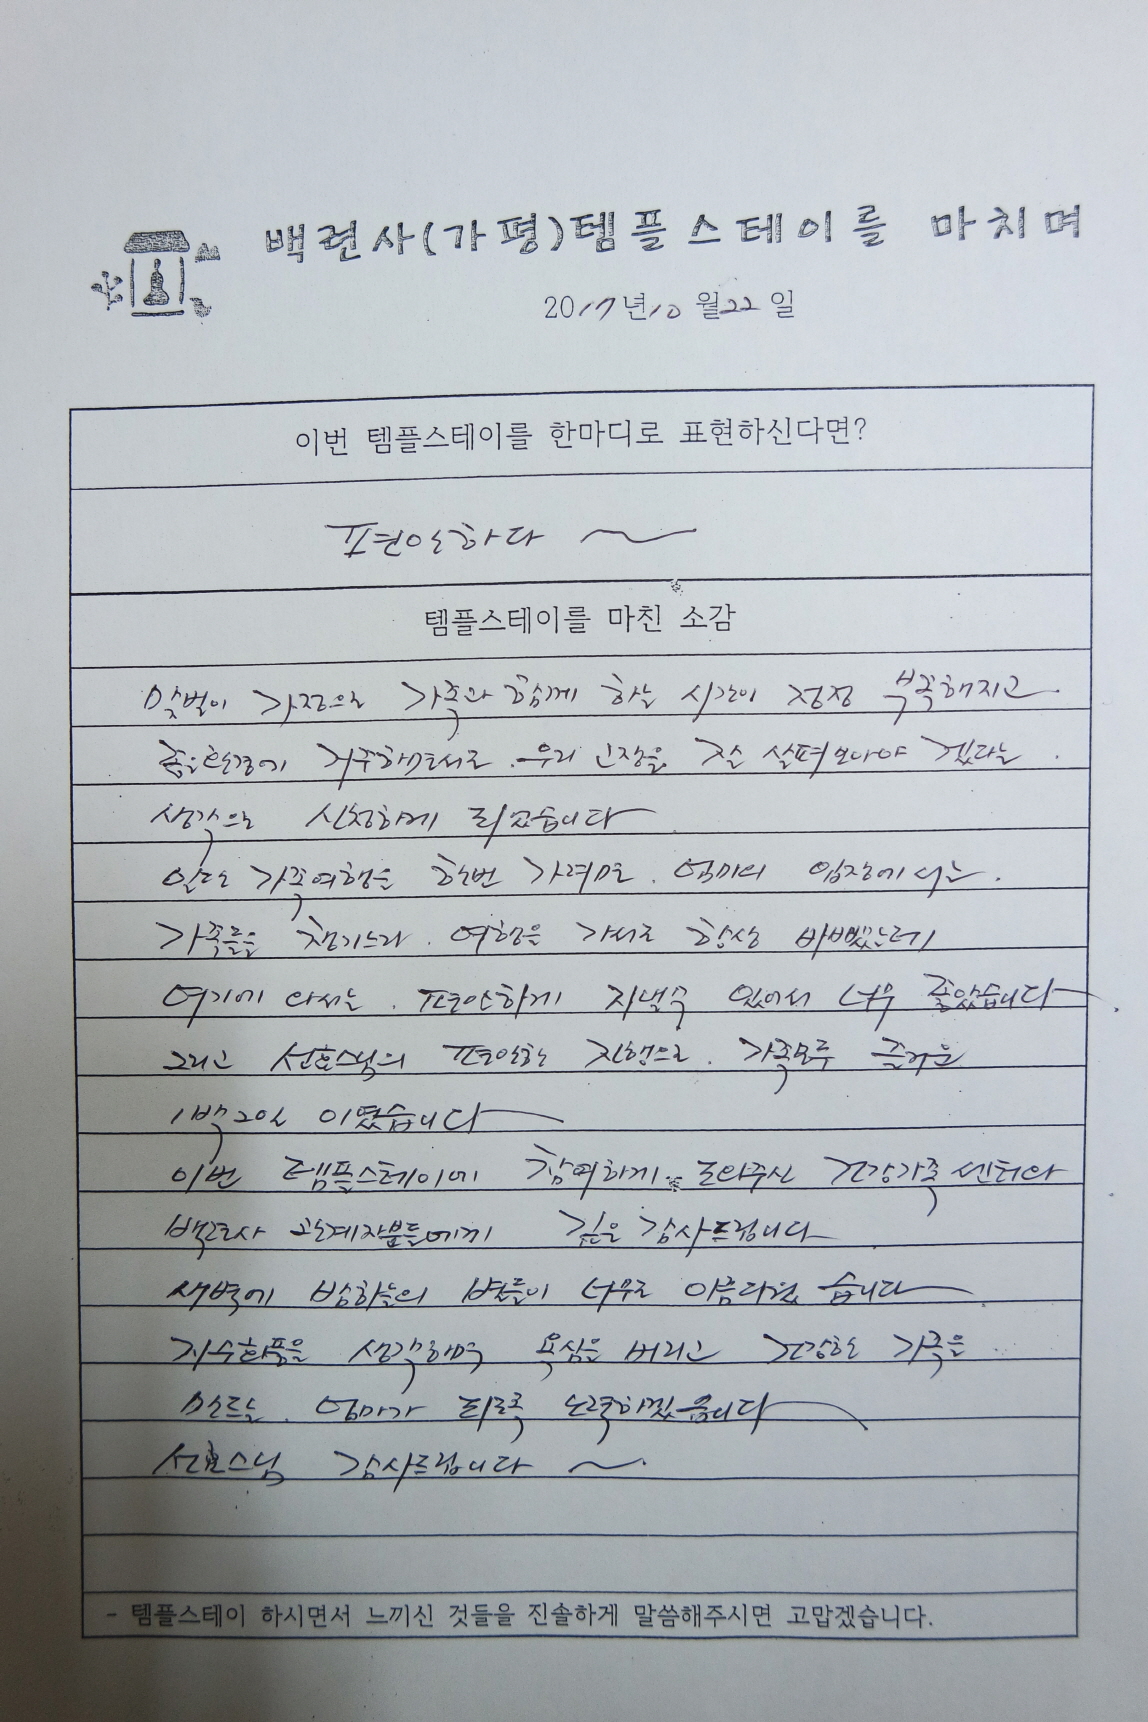 백련사(가평)템플스테이를 마치며
2017년10월22일
이번 템플스테이를 한마디로 표현하신다면?
편안하다 ~
템플스테이를 마친 소감
맞벌이 가정으로 가족과 함께 하는 시간이 점점 부족해지고
좋은환경에 거주하면서도 우리 고장을 잘 살펴보아야 겠다는
생각으로 신청하게 되었습니다
일단 가족여행을 한번 가려면 엄마의 입장에서는
가족들을 챙기느라 여행을 가서도 항상 바빴는데
여기에 와서는 편안하게 지낼수 있어서 너무 좋았습니다
그리고 선호스님의 편안한 진행으로 가족모두 즐거운
1박2일 이였습니다
이번 템플스테이에 참여하게 도와주신 건강가족센터와
백련사 관계자분들에게 깊은 감사드립니다
새벽에 밤하늘의 별들이 너무도 아름다웠습니다
지수화풍을 생각하며 욕심을 버리고 건강한 가족을
만드는 엄마가 되도록 노력하겠습니다
선호스님 감사드립니다 ~
- 템플스테이 하시면서 느끼신 것들을 진솔하게 말씀해주시면 고맙겠습니다.